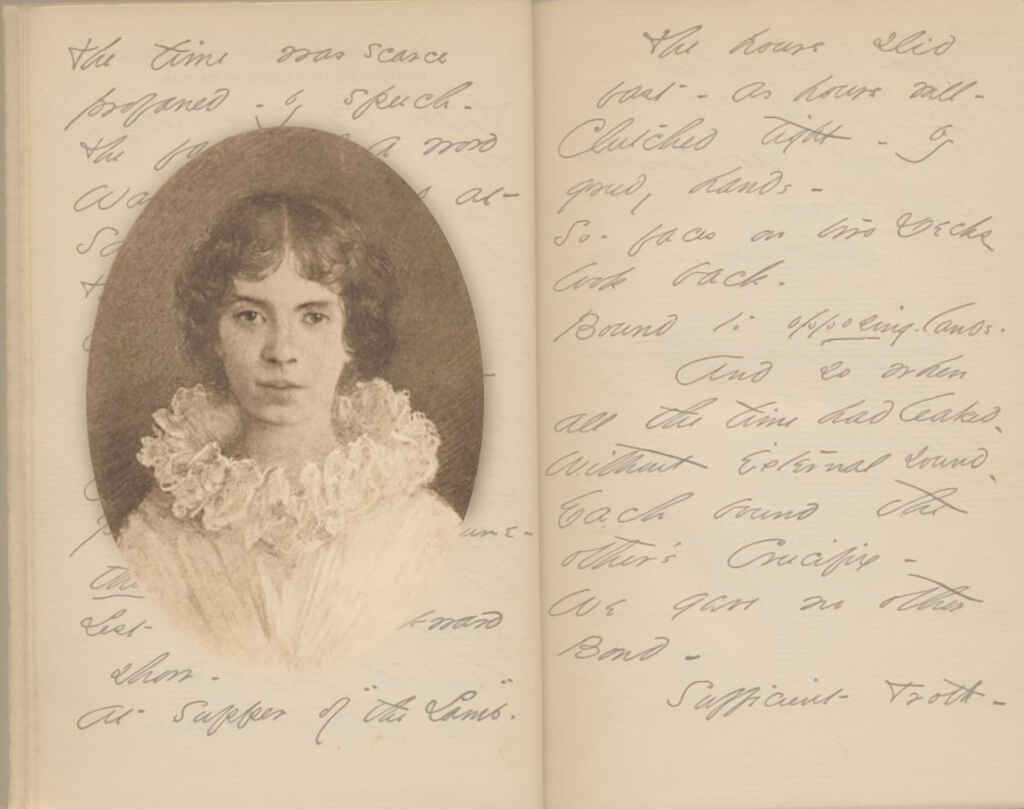 The time was scarce
profaned - by speech -
The a word
at -
the
Lest
show -
At Supper of "the Lamb".
The hours slid
fast - as hours will -
Clutched tight - by
greedy hands -
So - faces on two Decks
look back -
Bound to opposing lands.
And so when
all the time had leaked,
Without External sound,
Each bound the
other's Crucifix -
We gave no other
Bond -
Sufficient Troth -